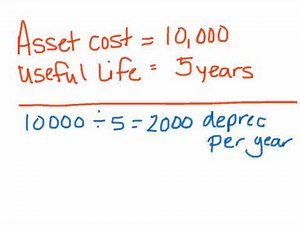 Asset cost = 10,000
useful Life = 5 years
10000 ÷ 5 = 2000 deprec
per year